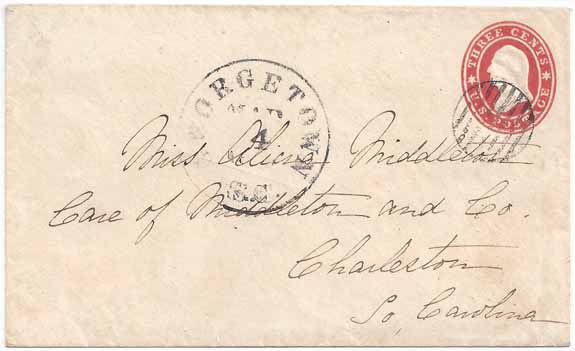 THREE CENTS
U.S. POSTAGE
GEORGETOWN
MAR
4
S.C.
Miss Alicia Middleton
Care of Middleton and Co.
Charleston
So. Carolina